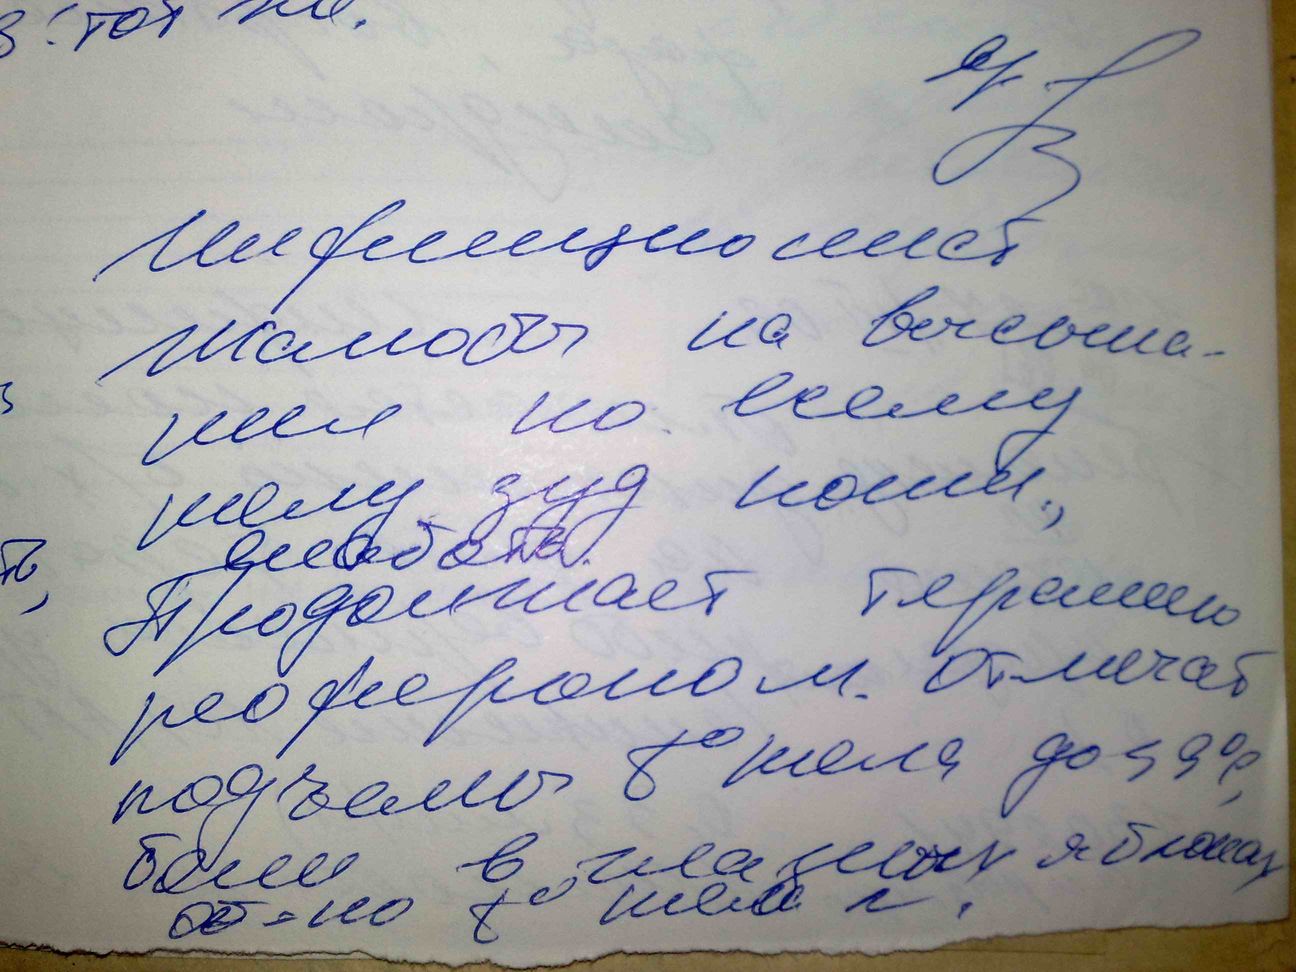 Инфекционист
Жалобы на высыпа-
ния по всему
телу, зуд кожи,
слабость.
Продолжает терапию
рефероном. Отмечает
подъемы t° тела до
боли в глазных яблоках
t° тела